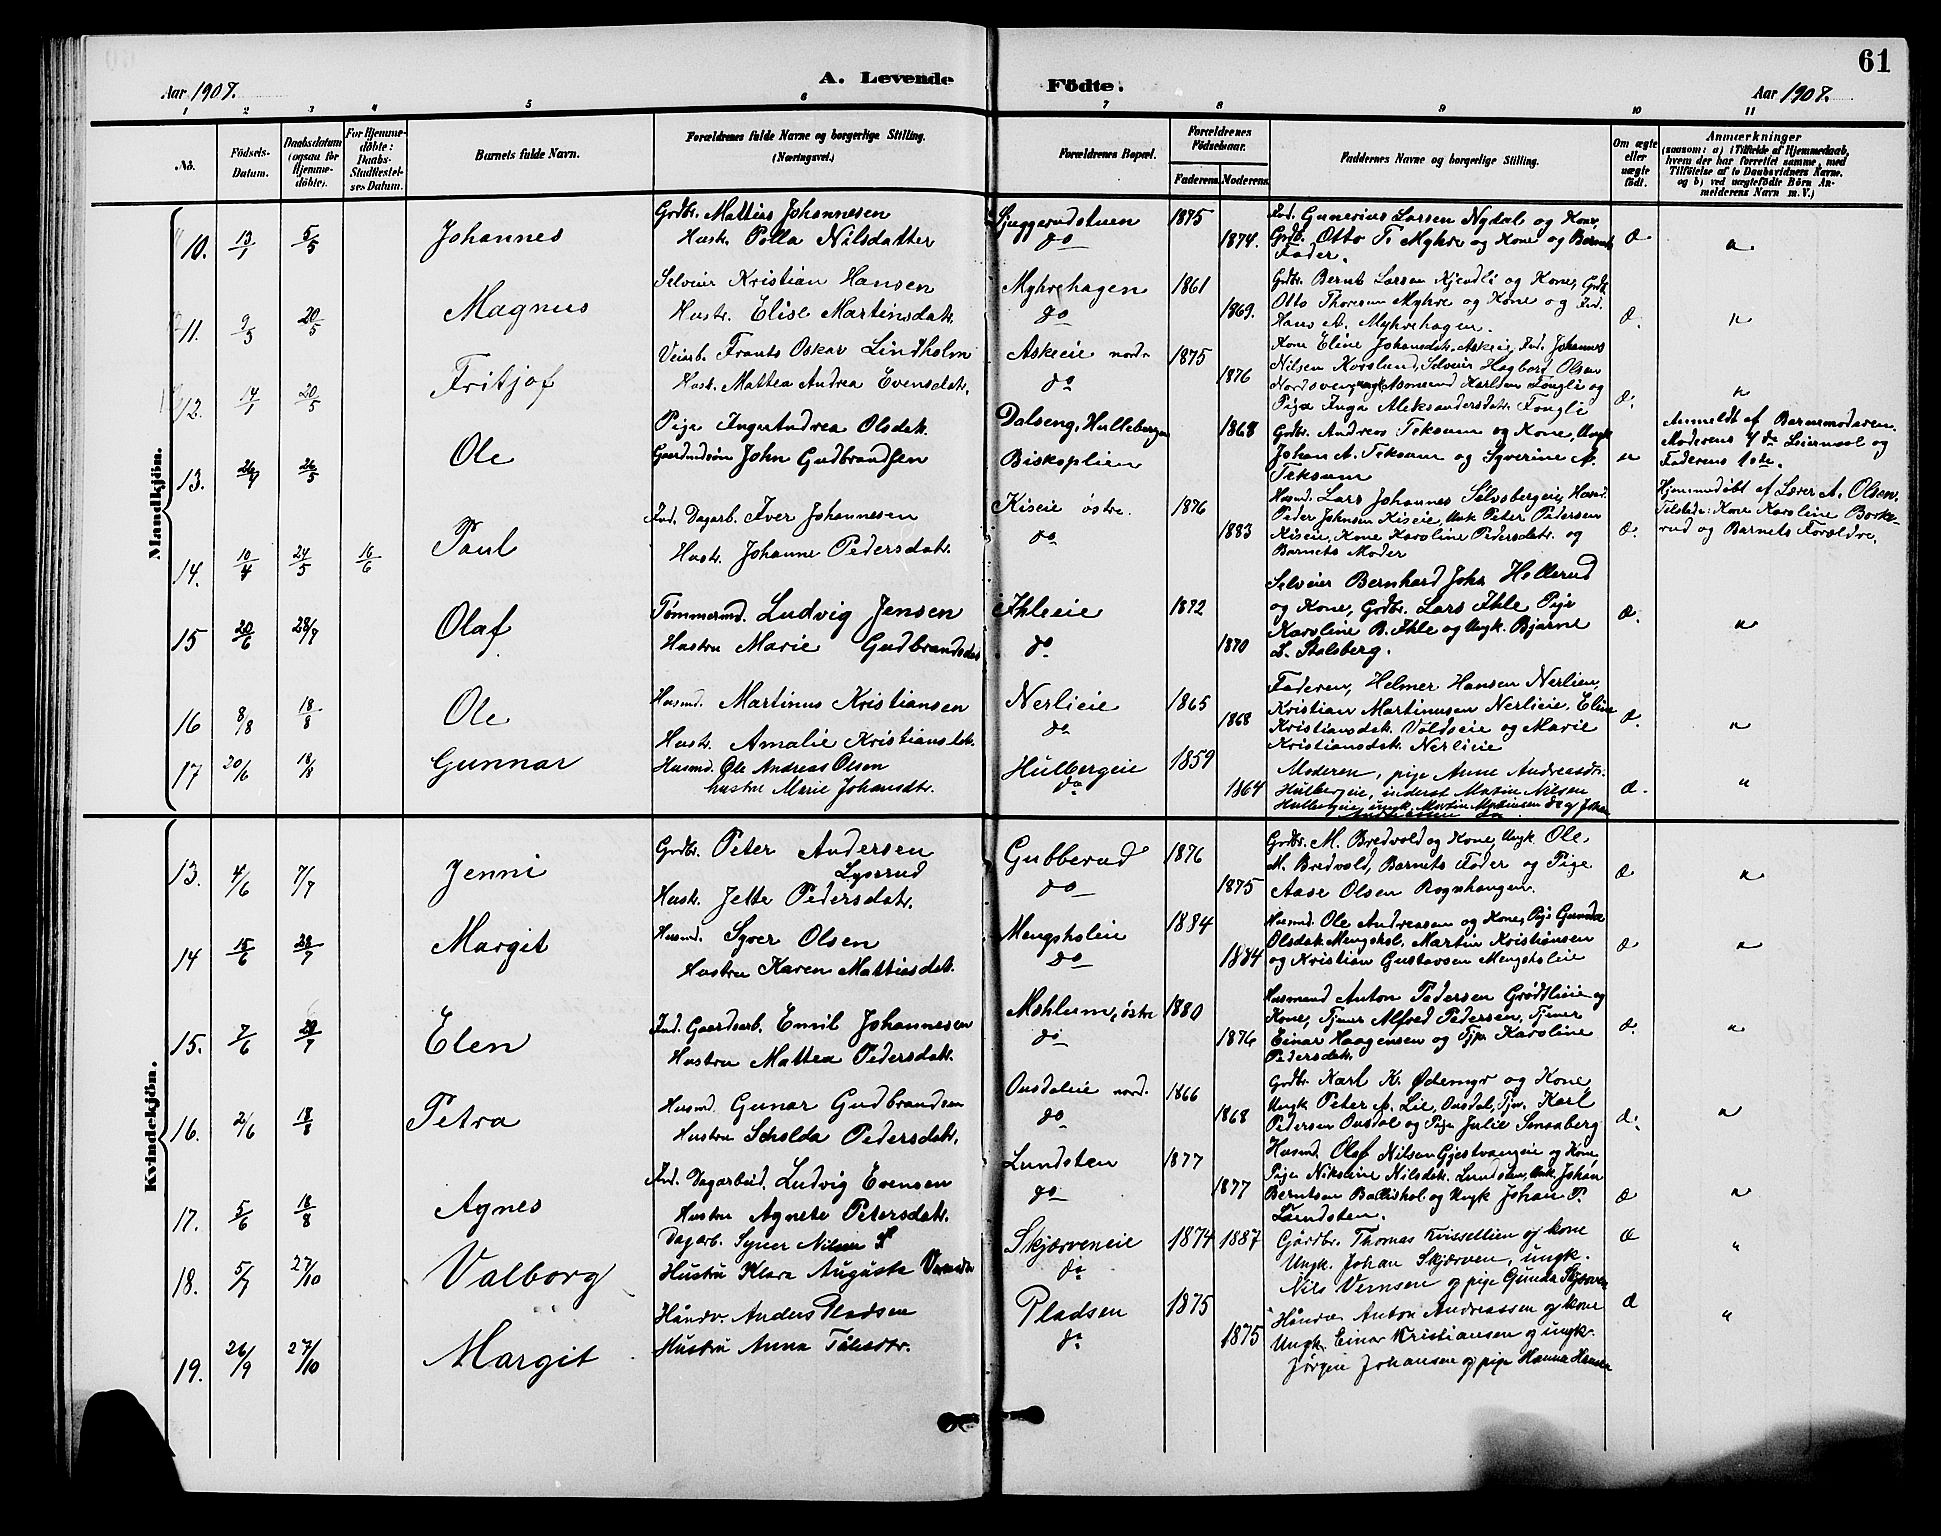 61
Aar 1907.
A. Levende Födte.
Aar 1907.
1 2 3 4 5 6 7 8 9 10 11
No.
Födsels-Datum.
Daabsdatum (ogsaa for Hjemme-döbte).
For Hjemme-döbte: Daabs-Stadfæstel-ses Datum.
Barnets fulde Navn.
Forældrenes fulde Navne og borgerlige Stilling. (Næringsvei.)
Forældrenes Bopæl.
Forældrenes Födselsaar.
Faderens. Moderens.
Faddernes Navne og borgerlige Stilling.
Om ægte eller uægte födt.
Anmærkninger
(saasom: a) i Tilfælde af Hjemmedaab, hvem der har forrettet samme, med Tilföielse af to Daabsvidners Navne, og b) ved uægtefödte Börn An-melderens Navn m. V.)
Mandkjön.
10. 13/1 5/5 Johannes
Grdbr. Mattias Johannesen
Hustr. Polla Nilsdatter
do
1875
1874.
Ind. Gunerius Larsen Nydal og Kone,
Grdb. Otto T. Myhre og Kone og Barnets
Fader.
Æ "
11. 9/3 20/5 Magnus
Selveier Kristian Hansen
Hustr. Elise Martinsdatr.
Myhrehagen
do
1861
1869.
Grdbr. Bernt Larsen Kjendli og Kone, Grdb.
Otto Thoresen Myhre og Kone og Ind.
Hans A. Myhrehagen.
Æ. "
12. 14/1 20/5 Fritjof
Veiarb. Frants Oskar Lindholm
Hust. Mattea Andrea Evensdatr.
Askeeie nordr
do
1875
1876
Kone Eline Johansdatr. Askeeie, Ind. Johannes
Nilsen Korslund, Selveier Hagbard Olsen
Nordsveen, Karlsen Fongli og
Pige Inga Aleksandersdatr. Fongli
Æ. "
13. 26/5 Ole
Pige Inger Andrea Olsdatr.
Gaardmdssön John Gudbrandsen
Dalseng, Hulleberget
Biskoplien
1868
Grdbr. Andreas Teksum og Kone, Ungk.
Johan A. Teksum og Syverine A.
Teksum
u
Anmeldt af Barnemoderen.
Moderens 4de Leiermaal og
Faderens 1ste.
14. 10/4 24/5 16/6 Paul
Ind. Dagarb. Iver Johannesen
Hustr. Johanne Pedersdatr.
Kiseie östre.
do
1876
1883
Husmd. Lars Johannes Sölvsbergeie, Husmd.
Peder Johnsen Kiseie, Ungk Peter Pedersen
Kiseie, Kone Karoline Pedersdatr. og
Barnets Moder
Æ.
Hjemmedöbt af Lærer A. Olsen.
Tilstede: Kone Karoline Borke-
rud og Barnets Forældre.
15 20/6 28/7 Olaf
Tömmermd. Ludvig Jensen
Hustru Marie Gudbrandsdatr
Ihleeie
do
1872
1870
Selveier Bernhard Johs Hellerud
og Kone, Grdbr. Lars Ihle Pige
Karoline B. Ihle og Ungk. Bjarne
L. Stalsberg.
Æ. "
16 8/8 18/8 Ole
Husmd. Martinus Kristiansen
Hustr. Amalie Kristiansdtr.
Nerlieie
do
1865
1868
Faderen, Helmer Hansen Nerlien,
Kristian Martinusen Nerlieie, Eline
Kristiansdatr. Voldseie og Marie
Kristiansdatr. Nerlieie
Æ. "
17 20/6 18/8 Gunnar
Husmd. Ole Andreas Olsen
hustru Marie Johansdtr.
Hulbergeie
do
1859
1864
Moderen, pige Anne Andreasdtr.
Hulbergeie, inderst Martin Nilsen
Hulbergeie, ungk. Martin Martinsen do og Johan
do
Æ. "
Kvindekjön.
13. 4/6 7/7 Jenni
Grdbr. Peter Andersen
Lysrud
Hustr. Jette Pedersdatr.
Gubberud
do
1876
1875
Grdbr. M. Bredvold og Kone, Ungk. Ole
M. Bredvold, Barnets Fader og Pige
Aase Olsen Rognhaugen.
Æ "
14 15/6 28/7 Margit
Husmd. Syver Olsen
Hustru Karen Mattiasdatr.
Mengsholeie
do
1884
1884
Husmd. Ole Andreassen og Kone, Pige Gunda
Olsdatr. Mengshol, Martin Kristiansen
og Kristian Gustavsen Mengsholeie
Æ "
15. 7/6 28/7 Elen
Ind. Gaardsarb. Emil Johannesen
Hustru Mattea Pedersdatr.
Mehlum, östre
do
1880
1876
Husmand Anton Pedersen Grödtlieie og
Kone, Tjener Alfred Pedersen, Tjener
Einar Haagensen og Tjp. Karoline
Pedersdatr.
Æ. "
16. 2/6 18/8 Petra
Husmd. Gunar Gudbrandsen
Hustru Pedersdatr.
Ousdaleie nord.
do
1866
1868
Grdbr. Karl K. Ödemyr og Kone,
Ungk Peter A. Lie, Ousdal, Tjen. Karl
Pedersen Ousdal og Pige Julie
Æ. "
17. 5/6 18/8 Agnes
Ind. Dagarbeid. Ludvig Evensen
Hustru Agnete Petersdatr.
Lundsten
do
1877
1877
Husmd. Olaf Nilsen Gjestvangeie og Kone,
Pige Nikoline Nilsdatr. Lundsten, Ungk. Johan
Berntsen Ballishol og Ungk Johan P.
Lundsten.
Æ "
18. 5/7 27/10 Valborg
Dagarb. Syver Nilsen
Hustru Klara Augusta
Skjærveneie
do
1874 1887
Gårdbr. Thomas og kone
Ungk. Johan Skjærven, ungk.
Nils Vernsen og pige Gunda Skjærven
Æ "
19. 26/9 27/10 Margit
Håndv. Anders Pladsen
Hustru Anna
Pladsen
do
1875
1875
Håndv. Anton Andreassen og kone
Ungk. Einar Kristiansen og ungk.
Jörgen Johansen og pige Hanna Hansen
Æ "